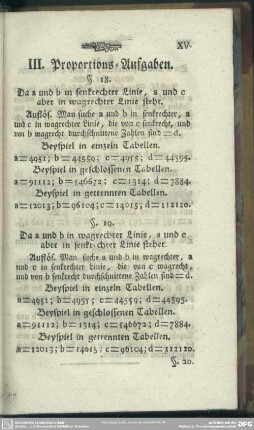 XV.
III. Proportions-Aufgaben.
§. 18.
Da a und b in senkrechter Linie, a und c
aber in wagrechter Linie steht.
Auflös. Man suche a und b in senkrechter, a
und c in wagrechter Linie, die von c senkrecht, und
von b wagrecht durchschnittene Zahlen sind = d.
Beyspiel in einzeln Tabellen.
a=4951; b=44559; c=4955; d=44595.
Beyspiel in geschlossenen Tabellen.
a=91112; b=546672; c=1314; d=7884.
Beyspiel in getrennten Tabellen.
a=12013; b=96104; c=14015; d=112120.
§. 19.
Da a und b in wagrechter Linie, a und c
aber in senkrechter Linie stehet.
Auflös. Man suche a und b in wagrechter, a
und c in senkrechter Linie, die von c wagrecht,
und von b senkrecht durchschnittene Zahlen sind = d.
Beyspiel in einzeln Tabellen.
a=4951; b=4955; c=44559; d=44595.
Beyspiel in geschlossenen Tabellen.
a=91112; b=1314; c=546672; d=7884.
Beyspiel in getrennten Tabellen.
a=12013; b=14015; c=96104; d=112120.
§. 20.